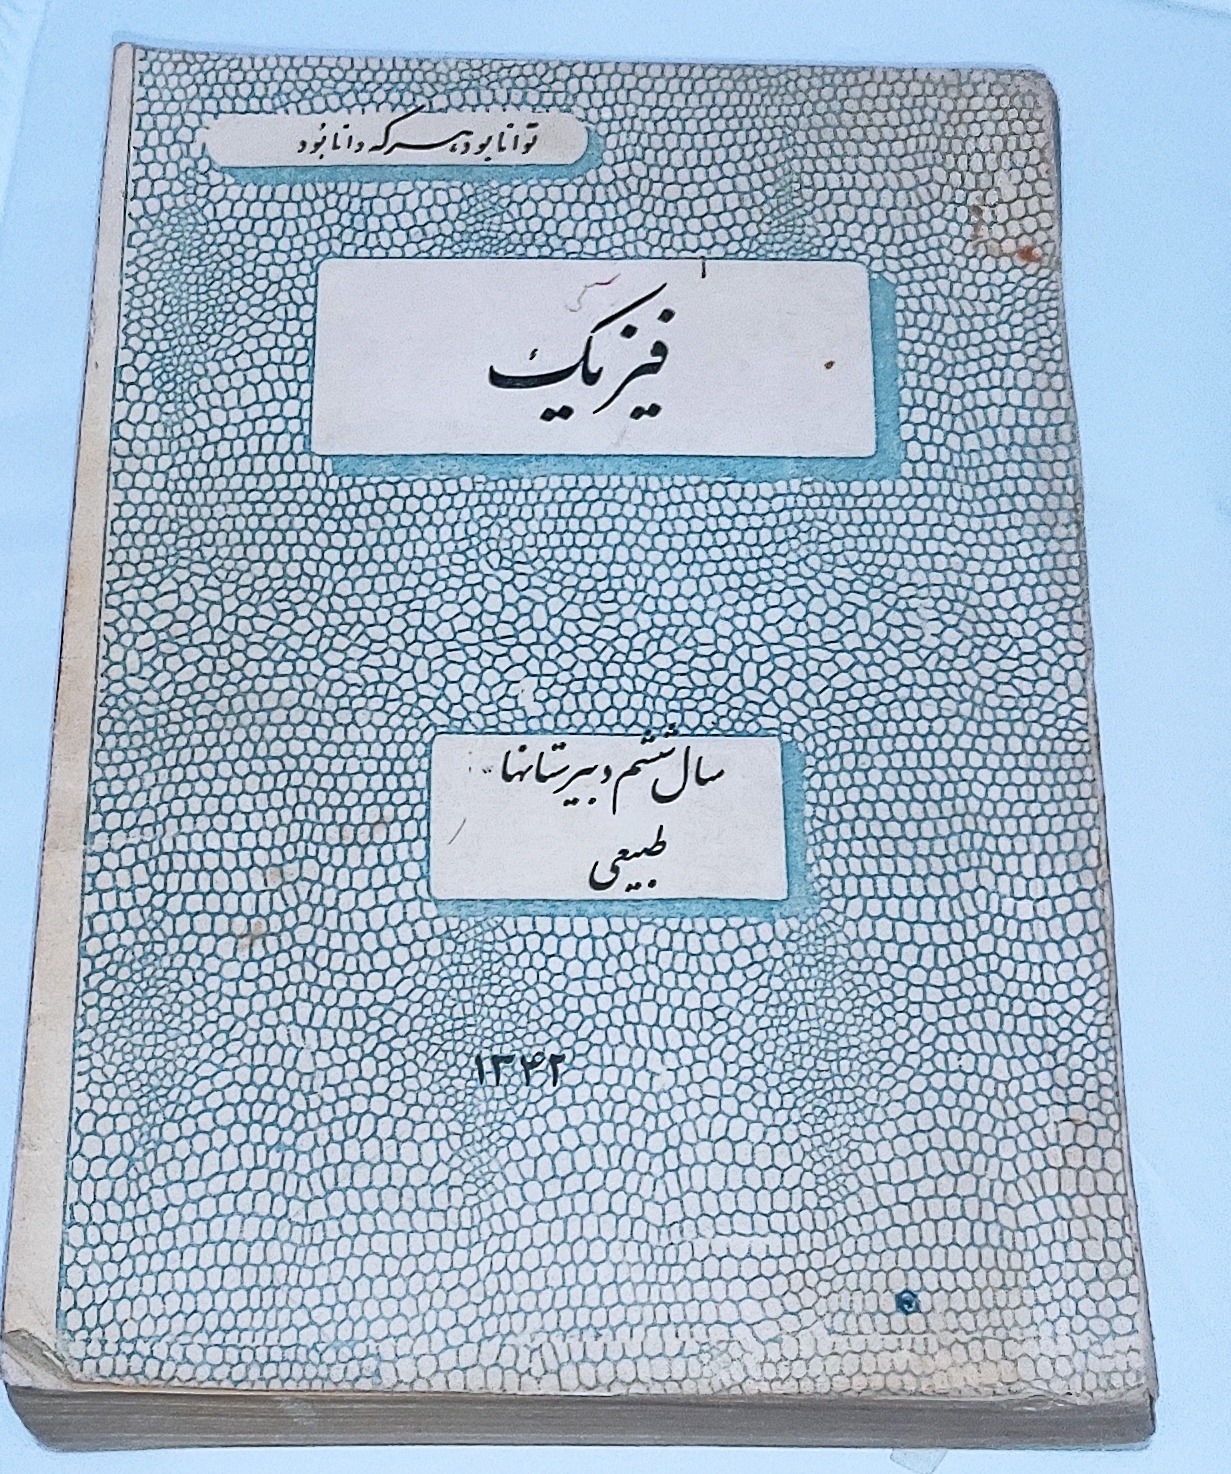 توانا بود هر که دانا بود
فیزیک
سال ششم دبیرستانها
طبیعی
۱۳۴۲